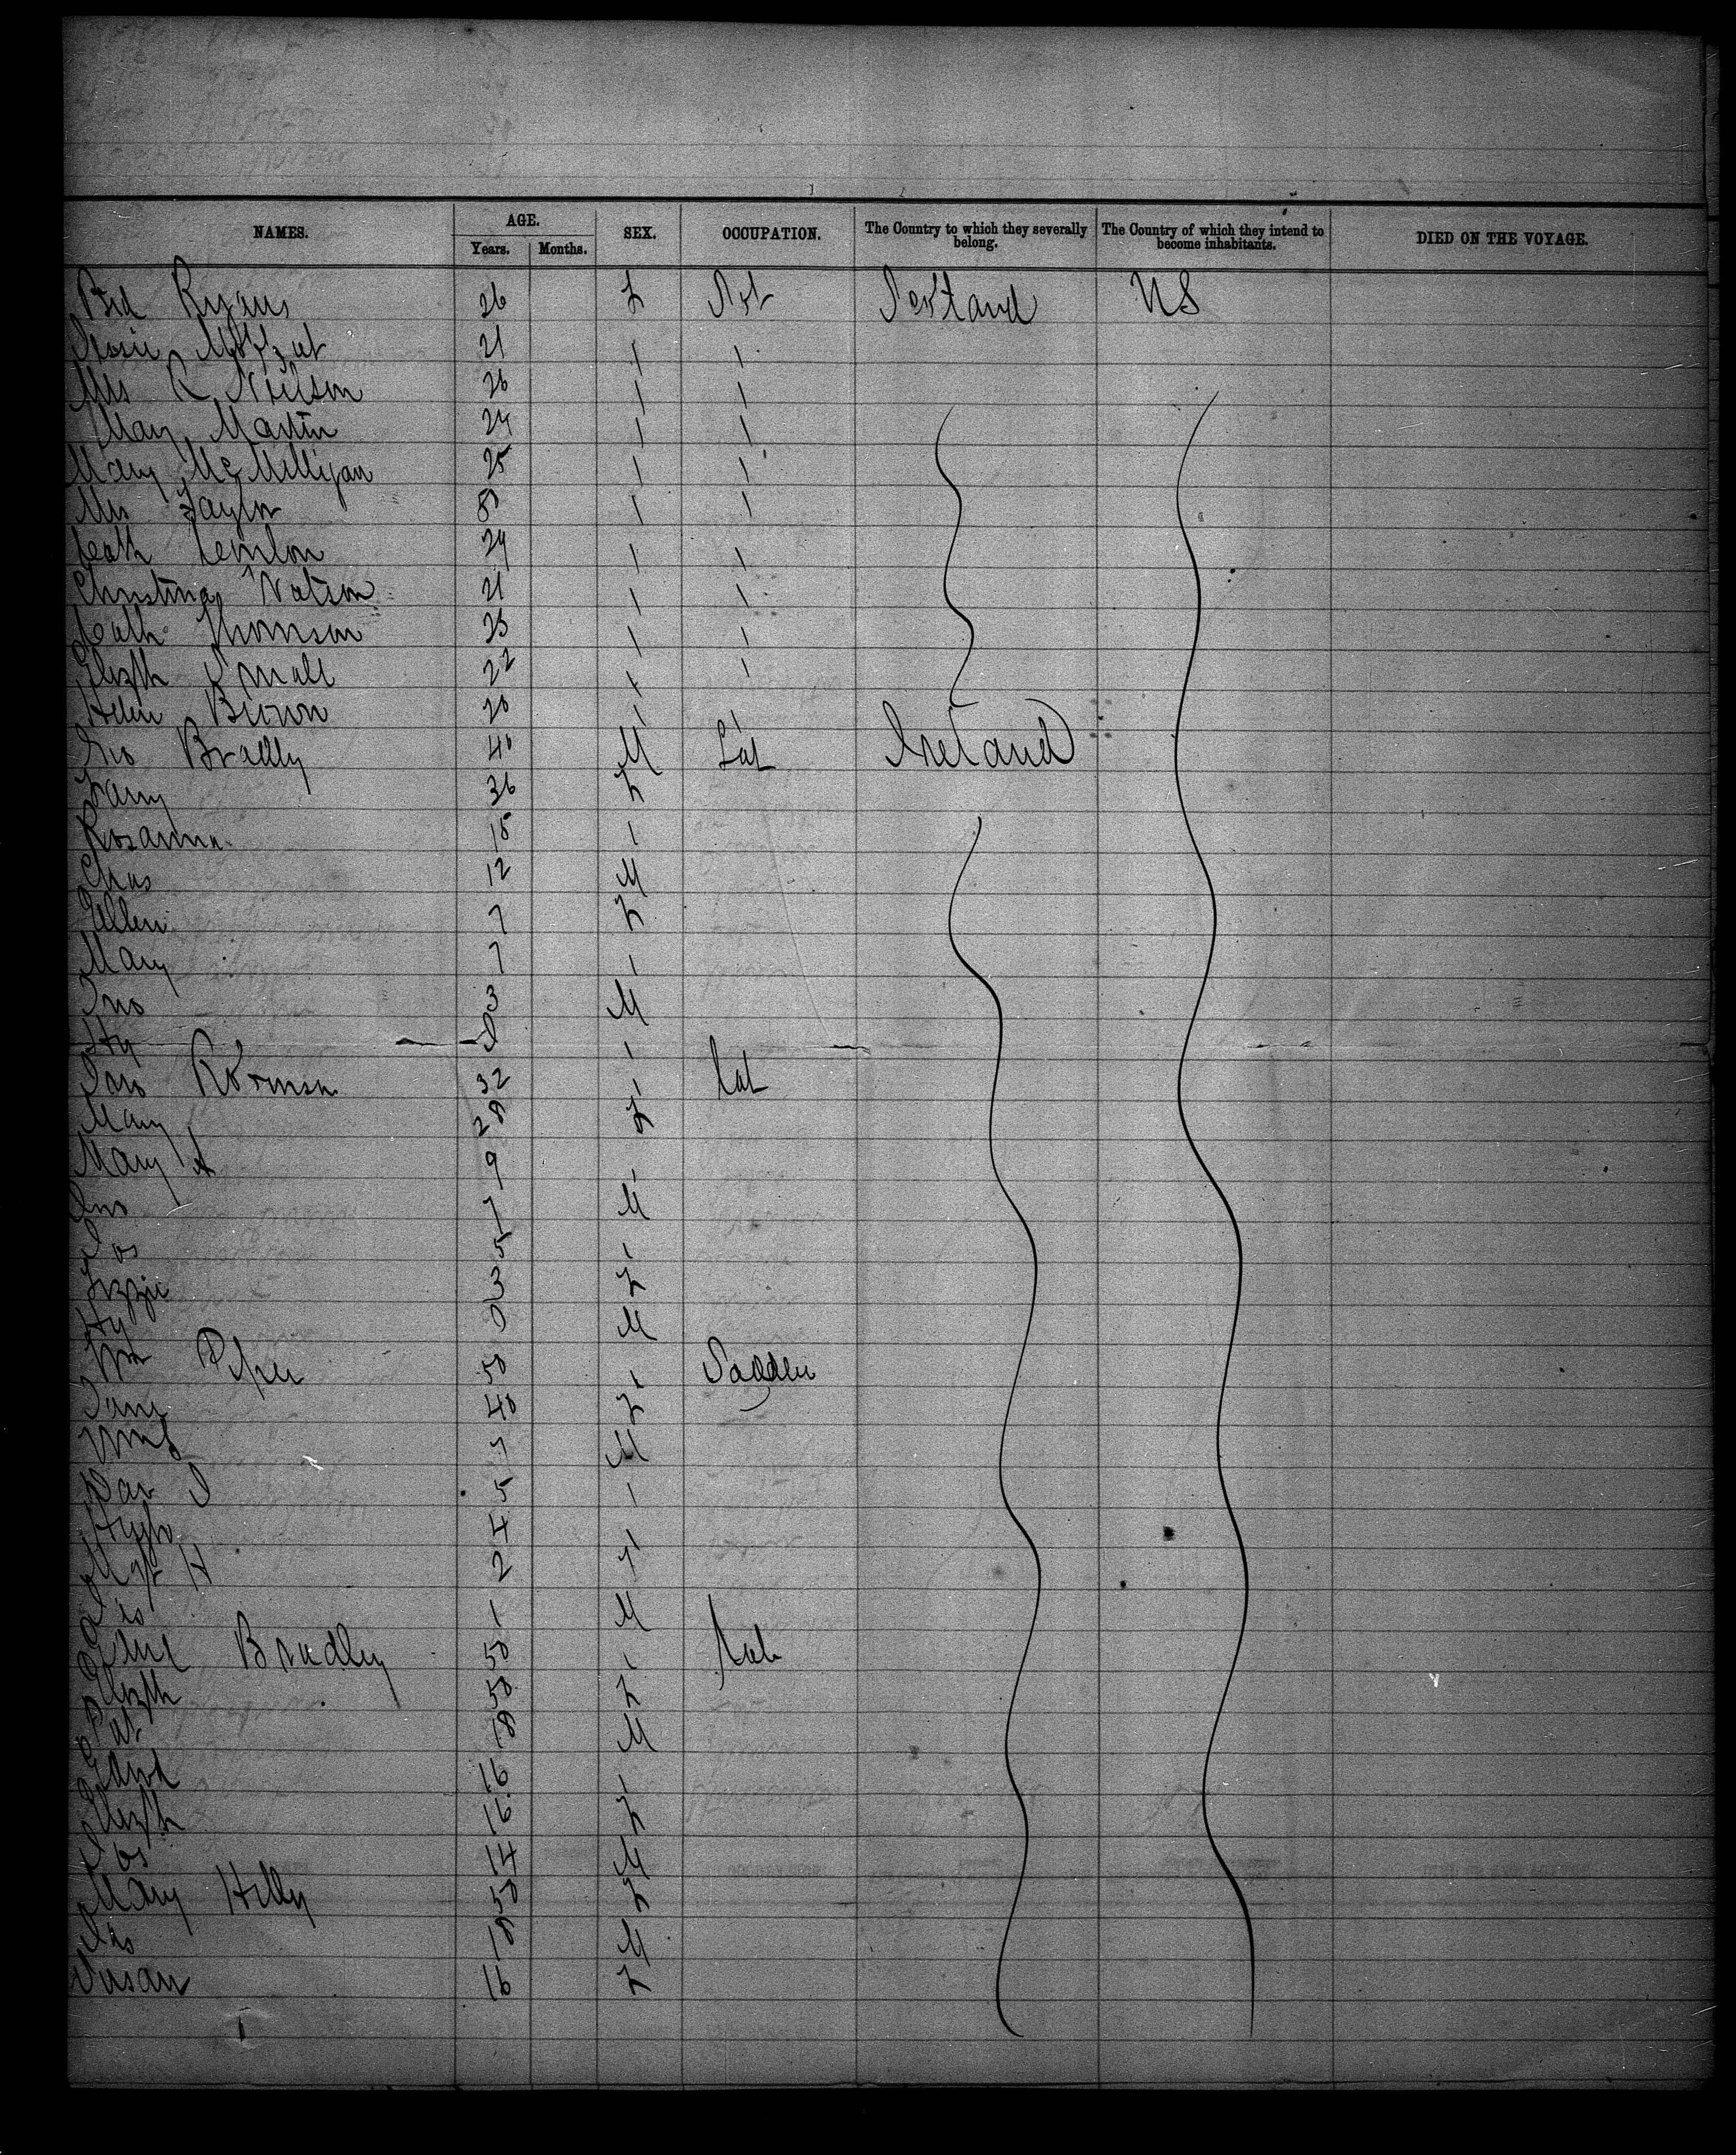 NAMES. AGE. SEX. OCCUPATION. The Country to which they severally belong. The Country of which they intend to become inhabitants. DIED ON THE VOYAGE.
Years. Months.
Bd Ryans 26 F Scotland US
Jessie Moffat 21 " "
Mrs R Neilson 26 " "
Mary Martin 24 " "
Mary McMilligan 25 " "
Mrs Taylor " "
Cath 24 " "
Christina Watson 21 " "
Cath Thomson 23 " "
Elizth Small 22 " "
Helen Brown 20 " "
Jno Bradley 40 M Lab Ireland
Fanny 36 F
Rosanna 18 "
Chas 12 M
Ellen 7 F
Mary 7 "
Jno 3 M
Hy "
Jno 32 " Lab
Mary 28 F
Mary A 9 "
Jno 7 M
Jos 5 "
Lizzie 3 F
Hy 0 M
Wm Piper 50 "
Jane 40 F
Wm 7 M
5 "
Hugh 4 "
Mgt H 2 F
Jno 1 M
Edwd Bradley 50 " Lab
Elizth 50 F
Pat 18 M
Edwd 16 "
Elizth 16 F
Jos 14 M
Mary 50 F
Jno 18 M
Susan 16 F